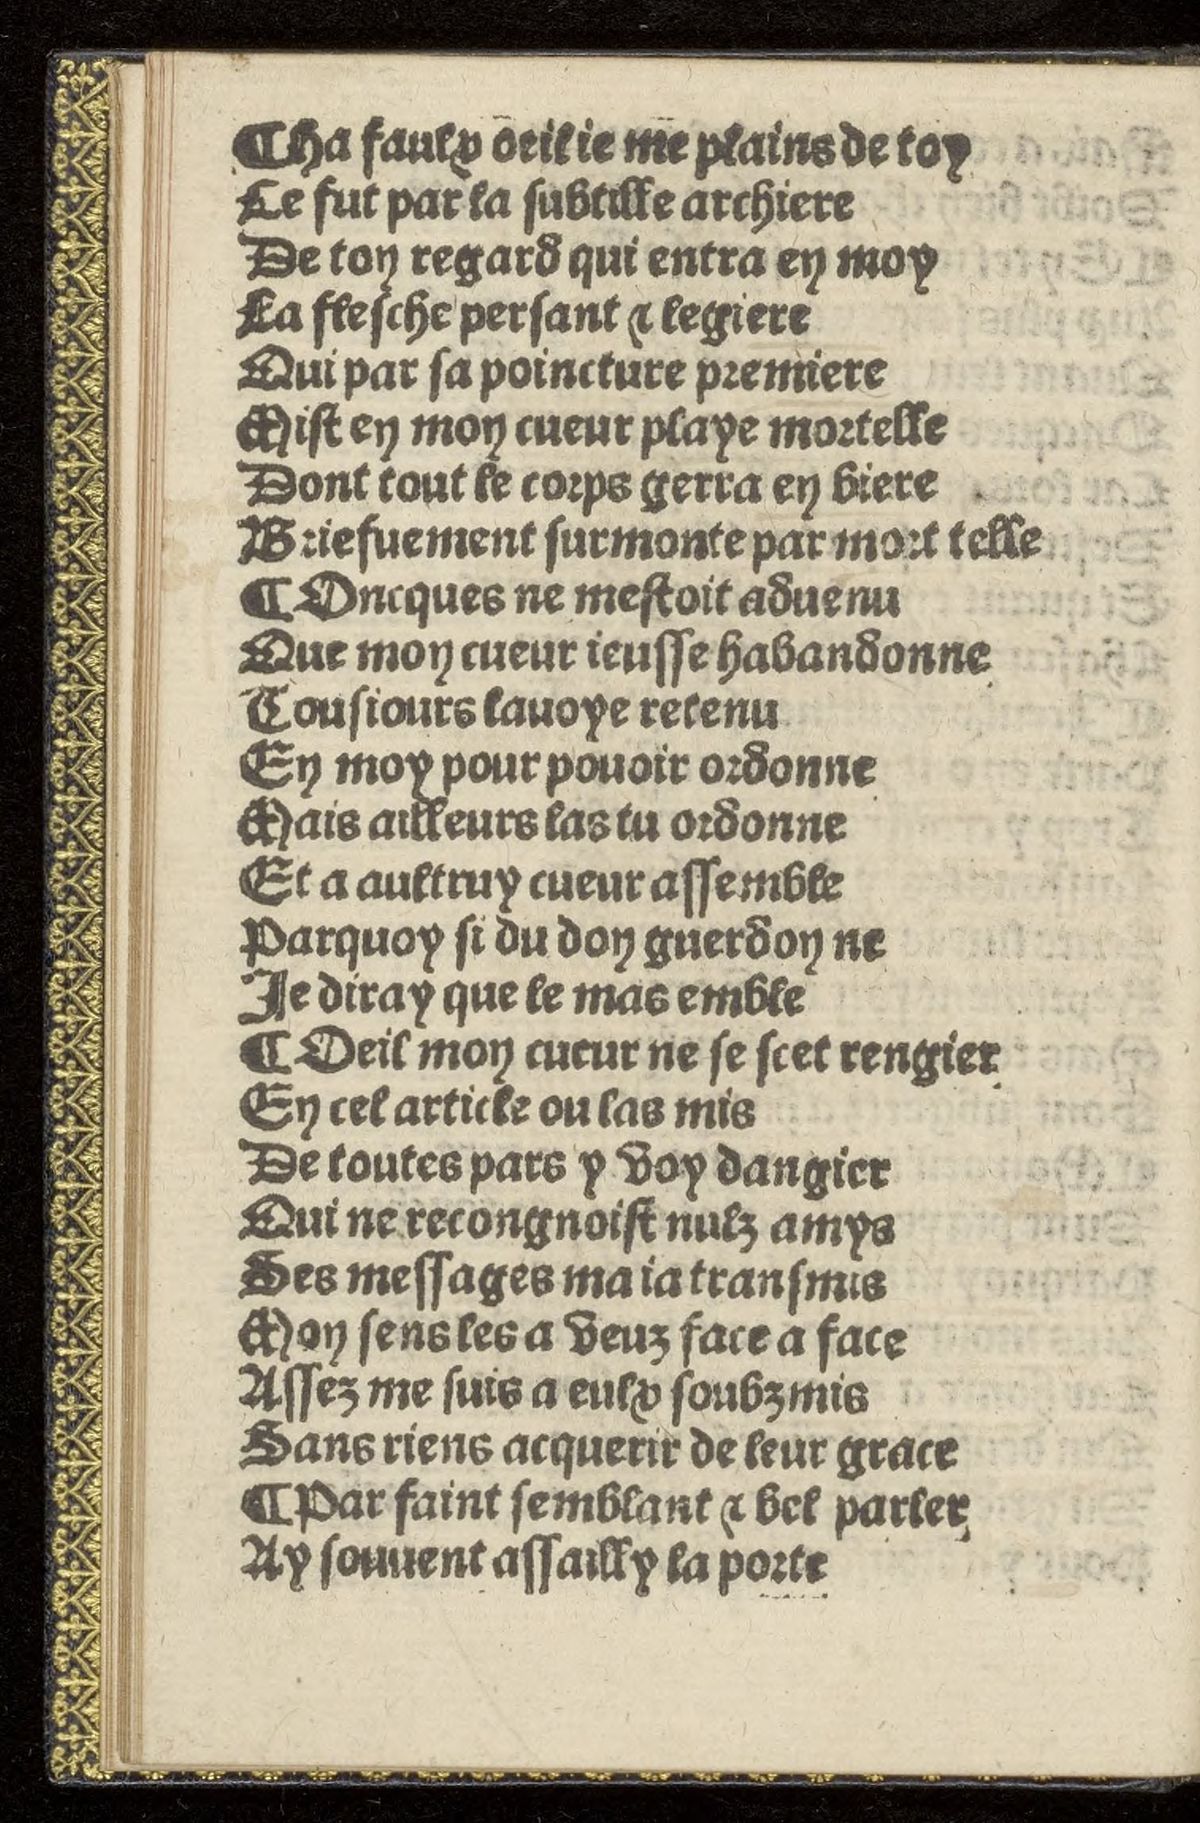 ¶ Ha faulx oeil ie me plains de toy
Ce fut par la subtille archiere
De ton regard qui entra en moy
La flesche persant & legiere
Qui par sa poincture premiere
Mist en mon cueur playe mortelle
Dont tout le corps gerra en biere
Briefuement surmonte par mort telle
¶ Oncques ne mestoit aduenu
Que mon cueur ieusse habandonne
Tousiours lauoye retenu
En moy pour pouoir ordonne
Mais ailleurs las tu ordonne
Et a aultruy cueur assemble
Parquoy si du don guerdon ne
Je diray que le mas emble
¶ Oeil mon cueur ne se scet rengier
En cel article ou las mis
De toutes pars y voy dangier
Qui ne recongnoist nulz amys
Ses messages ma ia transmis
Mon sens les a veuz face a face
Assez me suis a eulx soubzmis
Sans riens acquerir de leur grace
¶ Par faint semblant & bel parler
Ay souuent assailly la porte